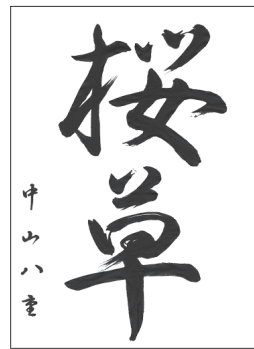 桜草
中山八重